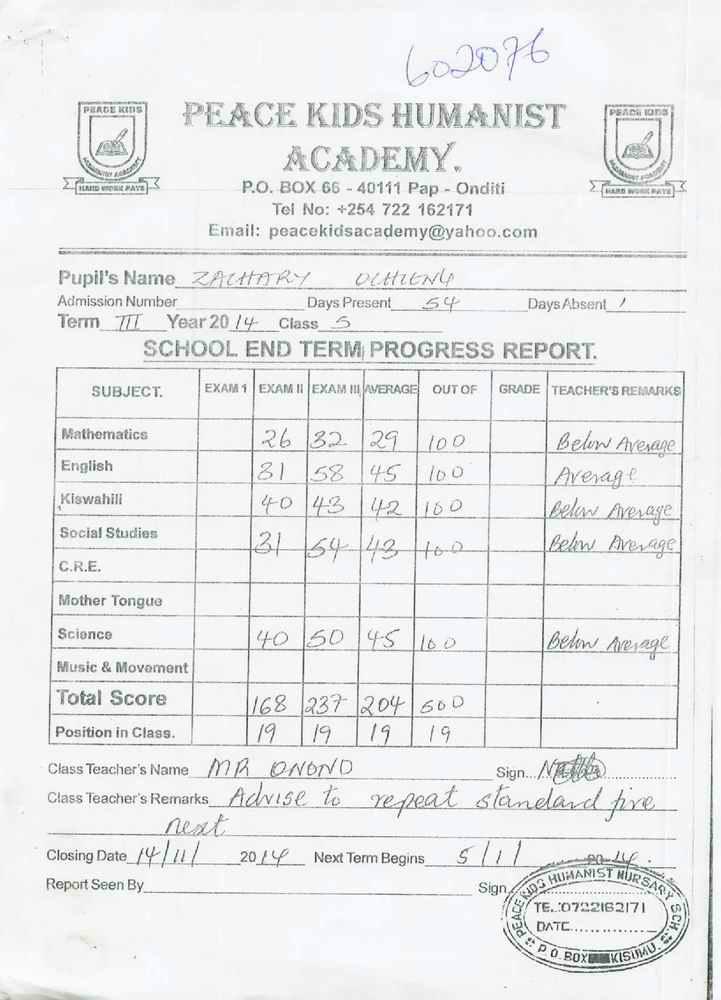 602076
PEACE KIDS HUMANIST
ACADEMY.
PEACE KIDS
HUMANIST ACADEMY
HARD WORK PAYS
PEACE KIDS
HUMANIST ACADEMY
HARD WORK PAYS
P.O. BOX 66 - 40111 Pap - Onditi
Tel No: +254 722 162171
Email: peacekidsacademy@yahoo.com
Pupil's Name ZACHARY OCHIENG
Admission Number Days Present 54 Days Absent 1
Term III Year 2014 Class 5
SCHOOL END TERM PROGRESS REPORT.
SUBJECT. EXAM 1 EXAM II EXAM III AVERAGE OUT OF GRADE TEACHER'S REMARKS
Mathematics 26 32 29 100 Below Average
English 31 58 45 100 Average
Kiswahili 40 43 42 100 Below Average
Social Studies 31 54 43 100 Below Average
C.R.E.
Mother Tongue
Science 40 50 45 100 Below Average
Music & Movement
Total Score 168 237 204 500
Position in Class. 19 19 19 19
Class Teacher's Name MR ONONO Sign...
Class Teacher's Remarks Advise to repeat standard five
next
Closing Date 14/11/ 2014 Next Term Begins 5/1/ 2014.
Report Seen By Sign
PEACE KIDS HUMANIST NURSARY SCH.
TE.:0722162171
DATE..............
P.O. BOX KISUMU.